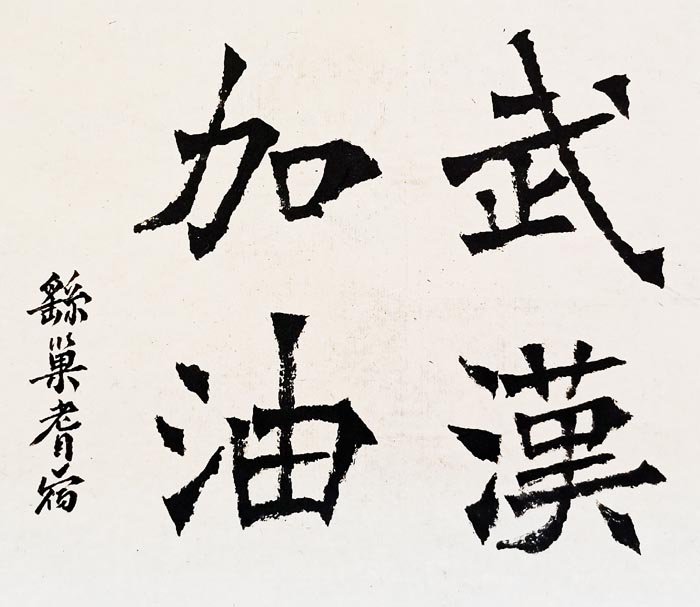 武漢
加油
繇巢耆宿